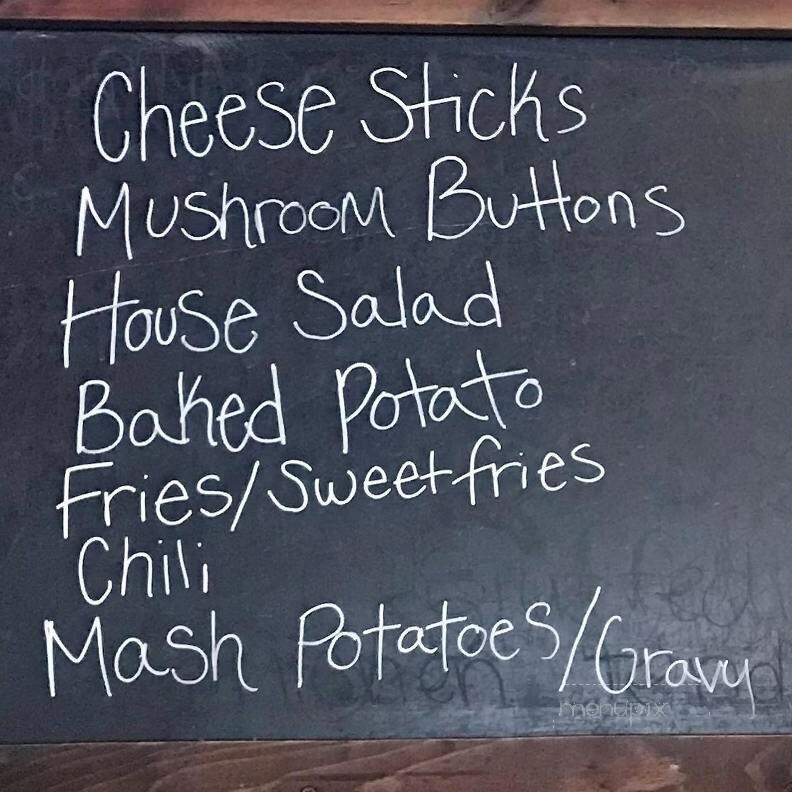 Cheese Sticks
Mushroom Buttons
House Salad
Baked Potato
Fries/Sweet fries
Chili
Mash Potatoes/Gravy
menupix